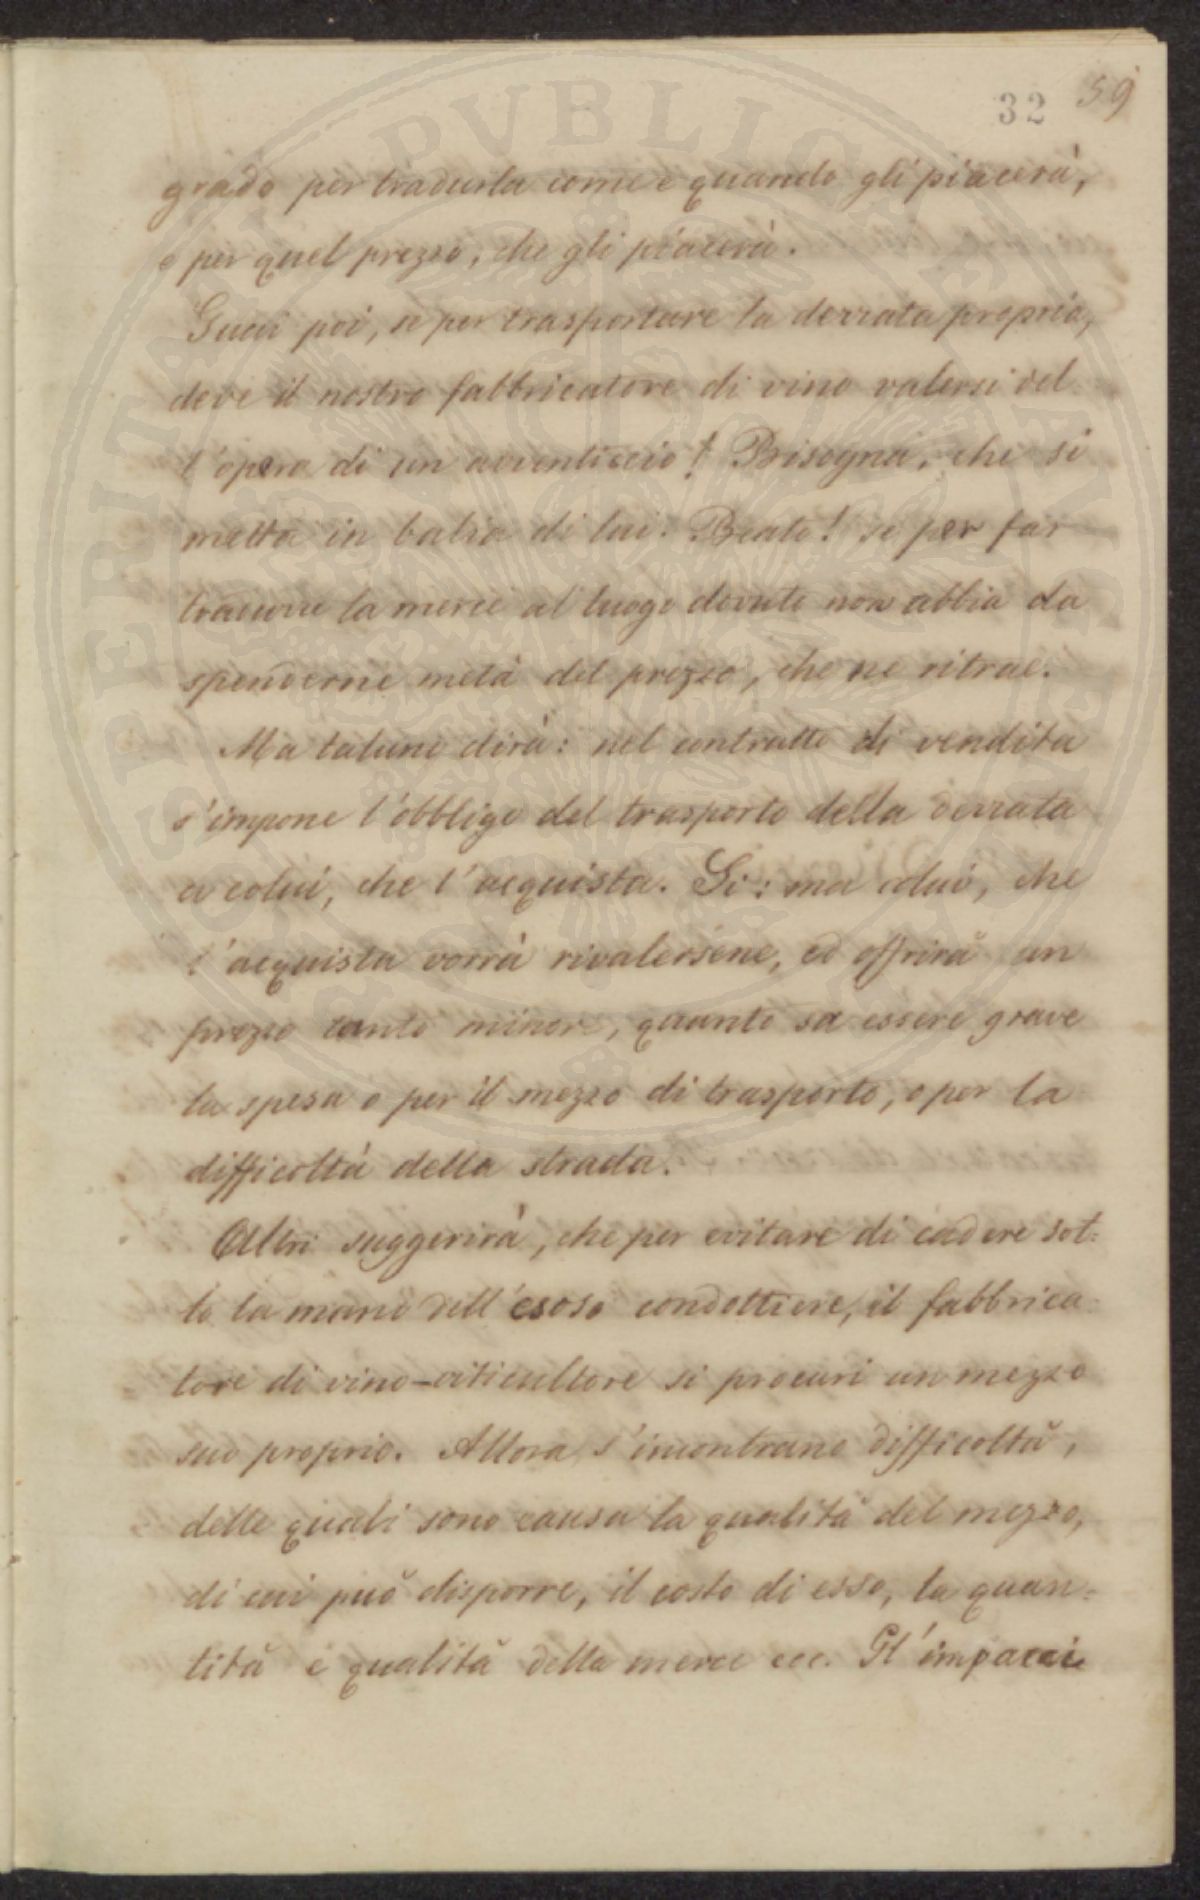 32 59
grado per tradurla come e quando gli piacerà,
e per quel prezzo, che gli piacerà.
Guai poi, se per trasportare la derrata propria,
deve il nostro fabbricatore di vino valersi del-
l'opera di un avventiccio! Bisogna, che si
metta in balia di lui. Beato! se per far
tradurre la merce al luogo dovuto non abbia da
spenderne metà del prezzo, che ne ritrae.
Ma taluno dirà: nel contratto di vendita
s'impone l'obbligo del trasporto della derrata
a colui, che l'acquista. Si: ma colui, che
l'acquista vorrà rivalersene, ed offrirà un
prezzo tanto minore, quanto sa essere grave
la spesa o per il mezzo di trasporto, o per la
difficoltà della strada.
Altri suggerirà, che per evitare di cadere sot-
to la mano dell'esoso condottiere, il fabbrica-
tore di vino-viticultore si procuri un mezzo
suo proprio. Allora s'incontrano difficoltà,
delle quali sono causa la qualità del mezzo,
di cui può disporre, il costo di esso, la quan-
tità e qualità della merce ecc. Gl'impacci
PROSPERITATI PVBLICAE AVGENDAE